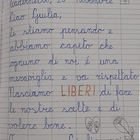 Ciao Giulia,
ti stiamo pensando e
abbiamo capito che
ognuno di noi è una
meraviglia e va rispettato
Lasciamo LIBERI di fare
le nostre scelte e di
volere bene.